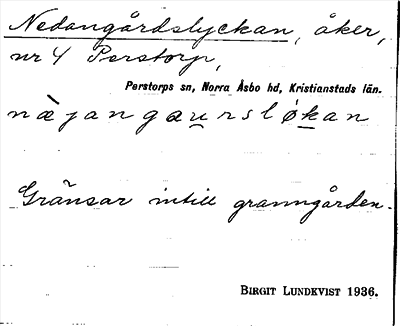 Nedangårdslyckan, åker,
nr 4 Perstorp,
Perstorps sn, Norra Åsbo hd, Kristianstads län.
næ̀jangaursløkan
Gränsar intill granngården.
BIRGIT LUNDKVIST 1936.